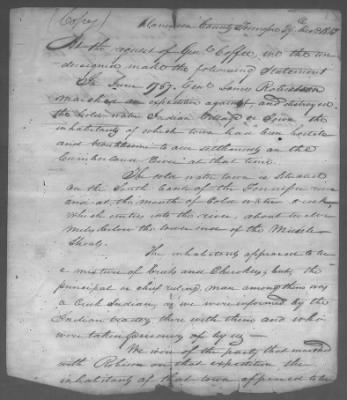 (Copy)
County Tennessee
At the request of Genl. Coffee, we the un
dersigned make the following Statement
In June 1787. Genl. James Robertson
marched an expedition against, and destroyed
the Cold water Indian Village or Town the
inhabitants of which town had been hostile
and troublesome to all settlements on the
Cumberland River at that time.
The cold water town is situated
on the South bank of the Tennessee river
and at the mouth of Cold water creek,
which enters into the river, about twelve
miles below the lower end of the Muscle
Shoals.
The inhabitants appeared to be
a mixture of Creeks and Cherokees, but the
principal or chief ruling man among them was
a Creek Indian, as we were informed by the
Indian there with them and who
were taken prisoners by us
We were of the party that marched
with Robison on that expedition the
inhabitants of that town appeared to be